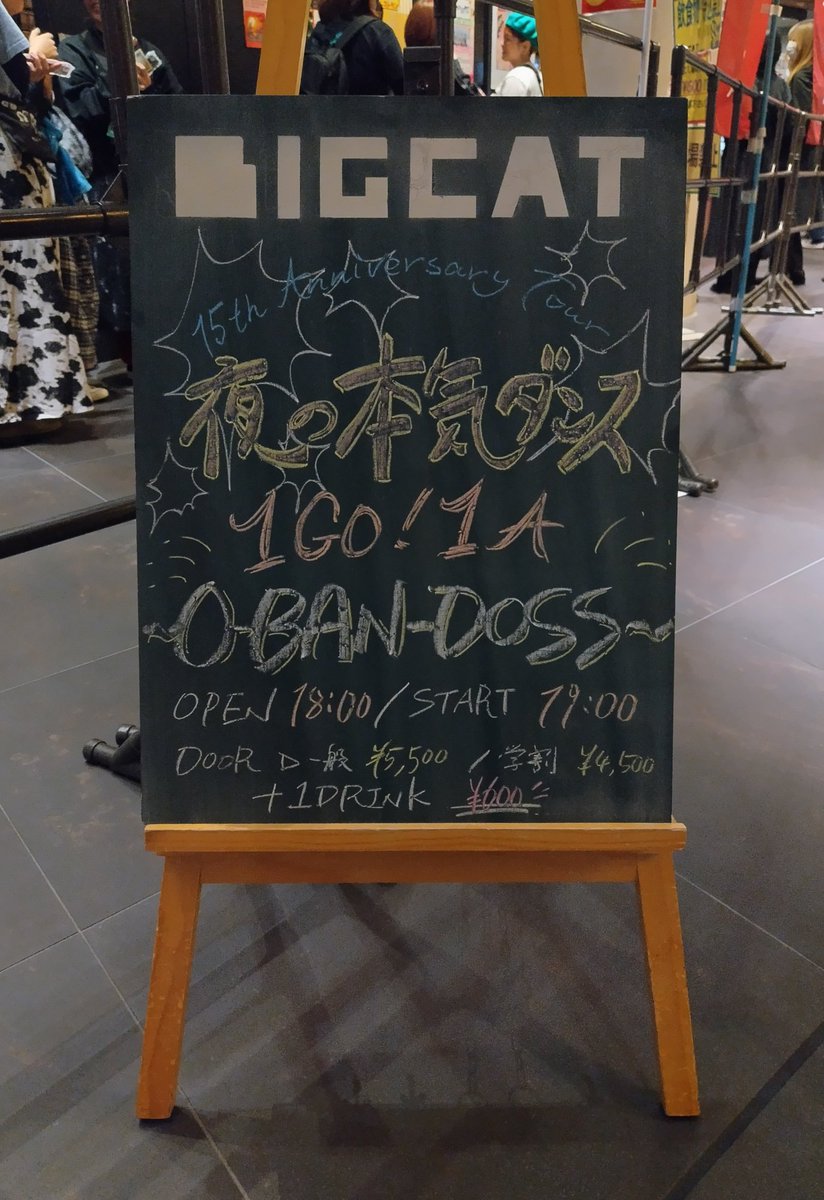 BIGCAT
15th Anniversary Tour
夜の本気ダンス
1GO!1A
~O-BAN-DOSS~
OPEN 18:00/START 19:00
DOOR ▷一般 ¥5,500 /学割 ¥4,500
+1DRINK ¥600